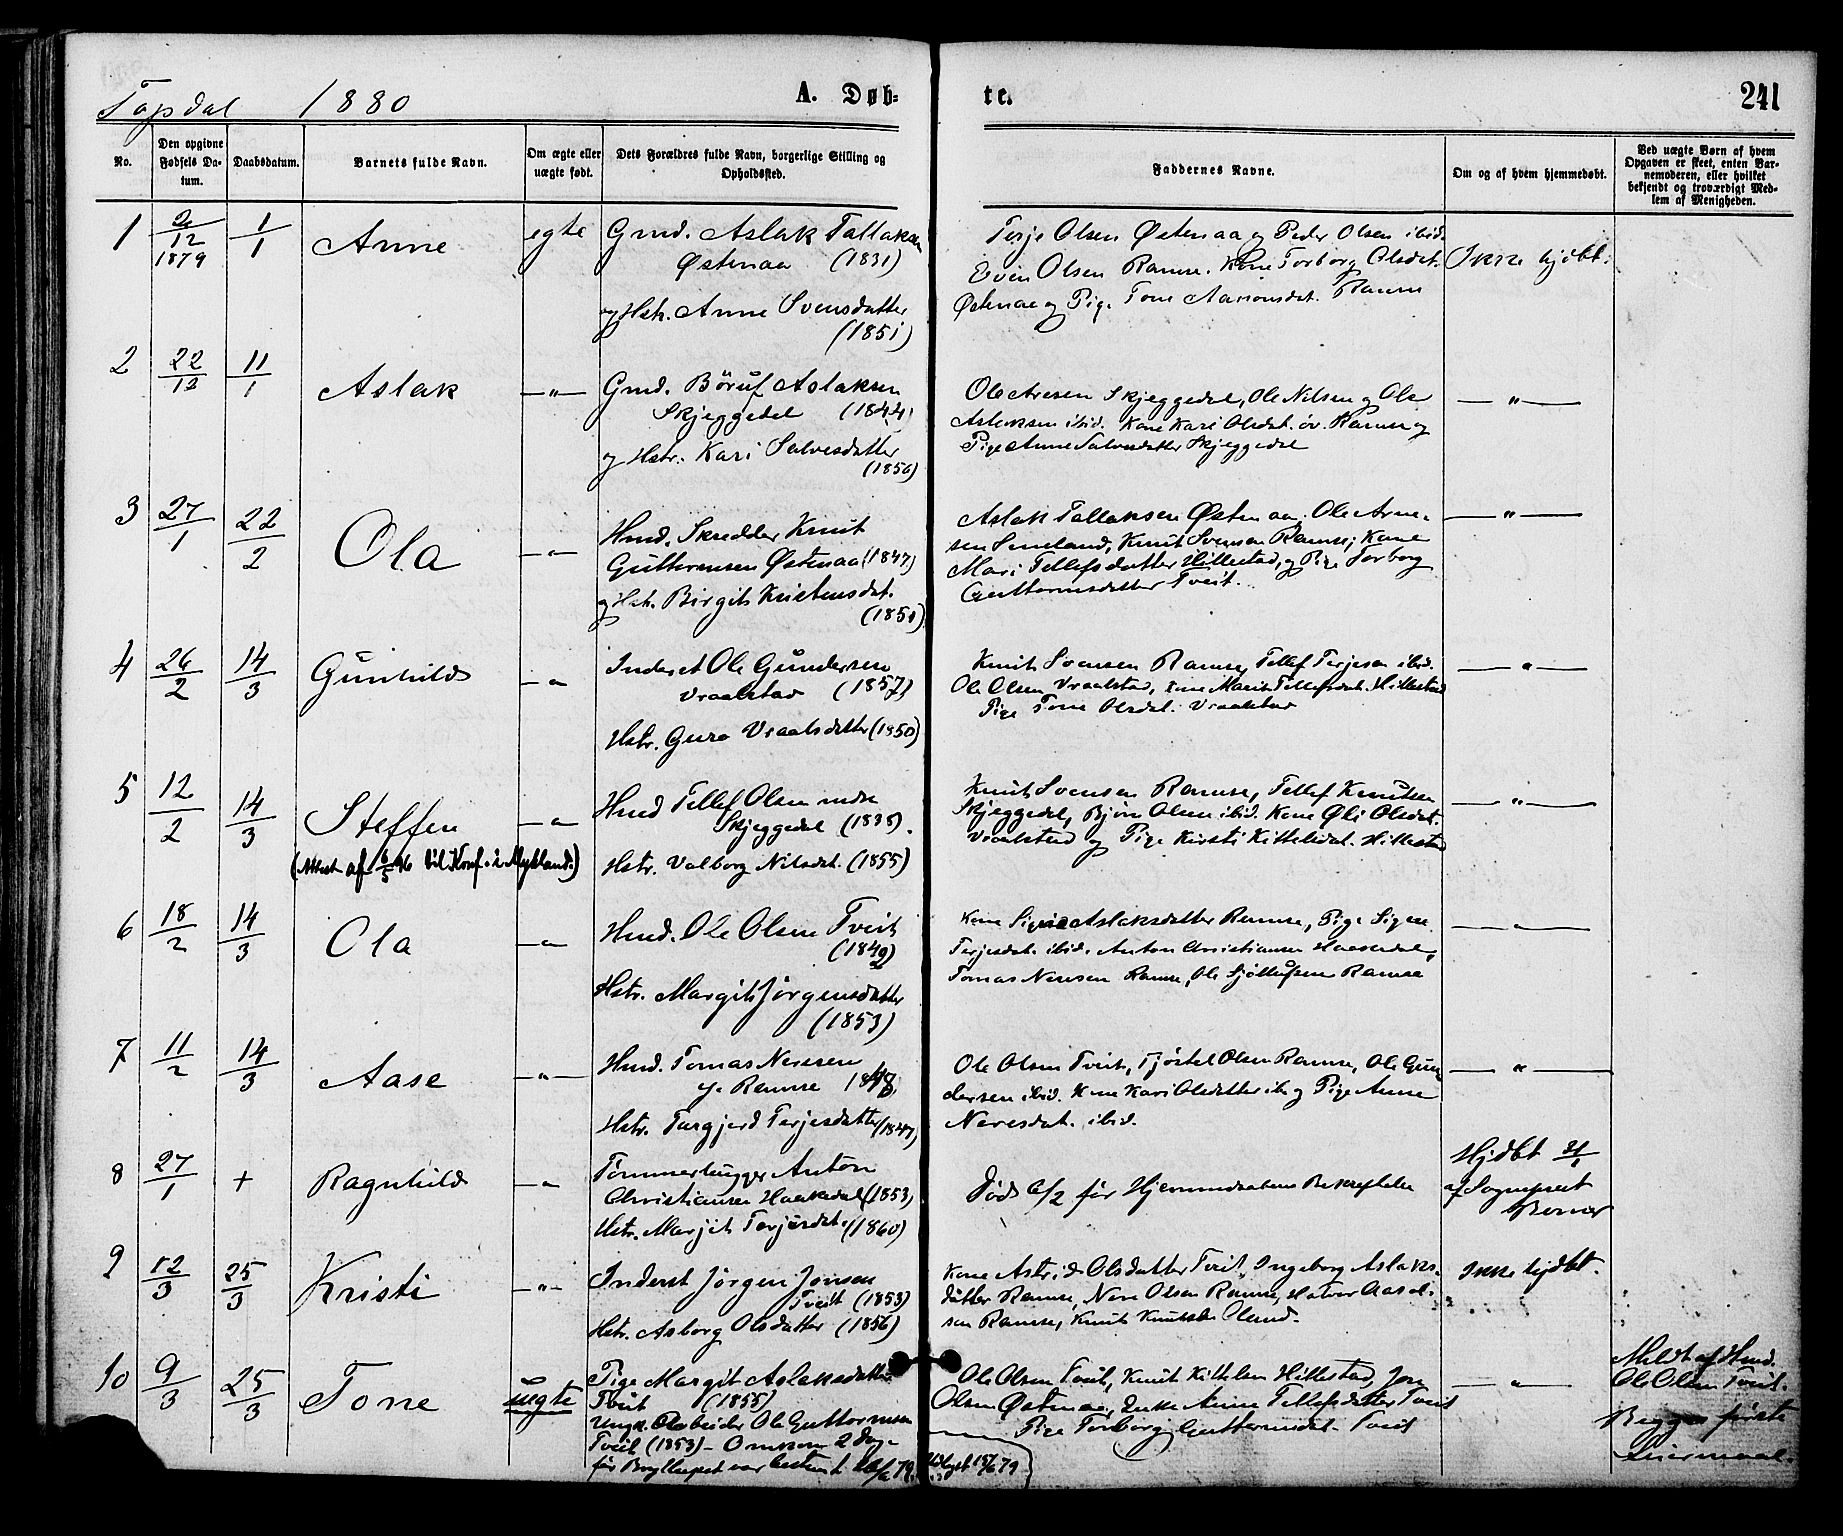 Topdal 1880 A. Døb-
te. 241
No.
Den opgivne Fødsels Da-
tum.
Daabsdatum.
Barnets fulde Navn.
Om ægte eller
uægte født.
Dets Forældres fulde Navn, borgerlige Stilling og
Opholdssted.
Faddernes Navne.
Om og af hvem hjemmedøbt.
Ved uægte Børn af hvem
Opgaven er skeet, enten Bar-
nemoderen, eller hvilket
bekjendt og troværdigt Med-
lem af Menigheden.
1 2/12 1879 1/1 Anne egte
Gmd. Aslak Tallaksen
Østenaa (1831)
og Hstr. Anne Svensdatter
(1851)
Terje Olsen Østenaa og Peder Olsen ibid.
Even Olsen Ramse. Kone Torborg Olsdat.
Østenaa og Pige Tone Aanonsdat. Ramse
Ikke hjdbt.
2 22/12 11/1 Aslak —"—
Gmd. Børuf Aslaksen
Skjeggedal (1844)
og Hstr. Kari Salvesdatter
(1856)
Ole Aresen Skjeggedal, Ole Nilsen og Ole
Aslaksen ibid. Kone Kari Olsdat. øv. Ramse og
Pige Anne Salvesdatter Skjeggedal
—"—
3 27/1 22/2 Ola —"—
Hmd. Skredder Knut
Guttormsen Østenaa (1847)
og Hstr. Birgit Kristensdat.
(1851)
Aslak Tallaksen Østenaa, Ole Arne-
sen Simeland, Knut Svensen Ramse, Kone
Mari Tellefsdatter Hillestad, og Pige Torborg
Guttormsdatter Tveit.
—"—
4 26/2 14/3 Gunhild —"—
Inderst Ole Gundersen
Vraalstad (1857)
Hstr. Guro Vraalsdatter (1850)
Knut Svensen Ramse, Tellef Terjesen ibid.
Ole Olsen Vraalstad, Kone Marit Tellefsdat. Hillestad
Pige Tone Olsdat. Vraalstad
—"—
5 12/2 14/3 Steffen —"—
(Attest af 6/5 96 til Konf. i Mykland.)
Hmd Tellef Olsen nedre
Skjeggedal (1835).
Hstr. Valborg Nilsdat. (1855)
Knut Svensen Ramse, Tellef Knutsen
Skjeggedal, Bjørn Olsen ibid. Kone Øli Olsdat.
Vraalstad og Pige Kirsti Kittelsdat. Hillestad
—"—
6 18/2 14/3 Ola —"—
Hmd. Ole Olsen Tveit
(1849)
Hstr. Margit Jørgensdatter
(1853)
Kone Signe Aslaksdatter Ramse, Pige Signe
Terjesdat. ibid. Anton Christiansen
Tomas Nersen Ramse, Ole Ramse
—"—
7 11/2 14/3 Aase —"—
Hmd. Tomas Nersen
y. Ramse 1848
Hstr. Targjerd Terjesdatter (1847)
Ole Olsen Tveit, Tjøstel Olsen Ramse, Ole Gun-
dersen ibid. Kone Kari Olsdatter ib. og Pige Anne
Neresdat. ibid.
—"—
8 27/1 + Ragnhild —"—
Tømmerhugger Anton
Christiansen (1853)
Hstr. Marjit Terjesdat. (1860)
Død 6/2 før Hjemmedaabens Bekræftelse
Hjdbt 31/1
af Sogneprest
9 12/3 25/3 Kristi —"—
Inderst Jørgen Jonsen
Tveit (1853)
Hstr. Asborg Olsdatter (1856)
Kone Astrid Olsdatter Tveit, Ingeborg Aslaks-
datter Ramse, Nere Olsen Ramse, Halvor Aasul-
sen Ramse, Knut Knutsen
Ikke hjdbt.
10 9/3 25/3 Tone uegte
Pige Margit Aslaksdatter
Tveit (1855)
Ungk. Arbeider Ole Guttormsen
Tveit (1853) - Omkom 2 Dag-
før Bryllupet var bestemt
Ole Olsen Tveit, Knut Kittelsen Hillestad, Jon
Olsen Østenaa, Enke Anne Tellefsdatter Tveit
Pige Torborg Guttormsdat. Tveit
—"—
Meldt af Hmd.
Ole Olsen Tveit.
Begges første
Leiermaal.